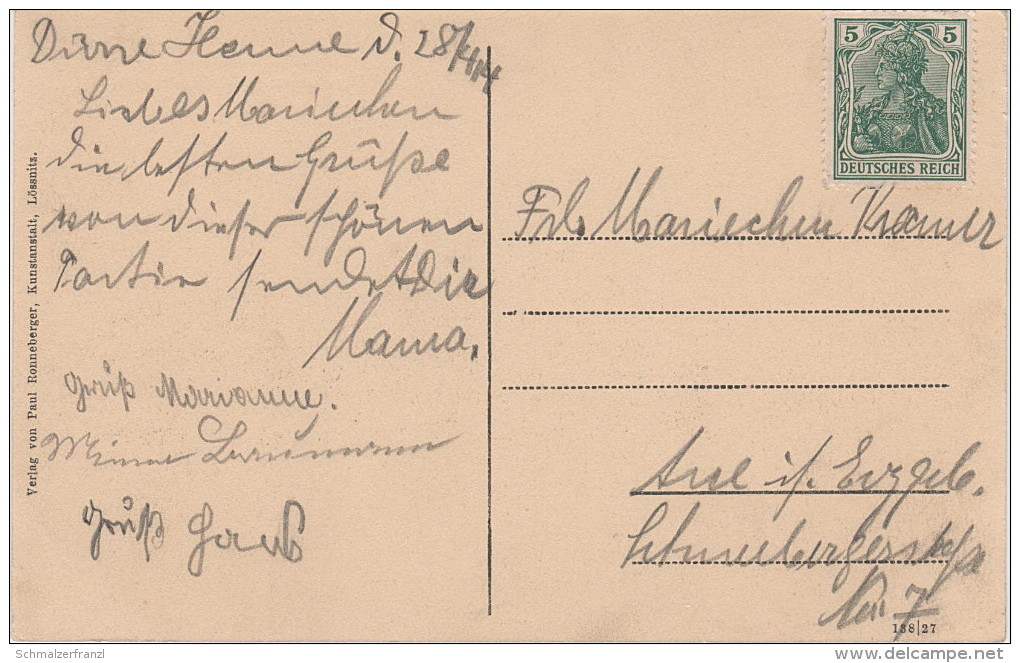 Dürre Henne d. 28/4 14
Liebes Mariechen
die besten Grüße
von dieser schönen
Partie sendet Dir
Mama.
Gruß Marianne.
Minna
Gruß Hans
Verlag von Paul Ronneberger, Kunstanstalt, Lössnitz.
5 5
DEUTSCHES REICH
Frl. Mariechen Kramer
Aue i/ Erzgeb.
Schneebergerstraße
No 7
138|27
Schmalzerfranzl
delcampe.net